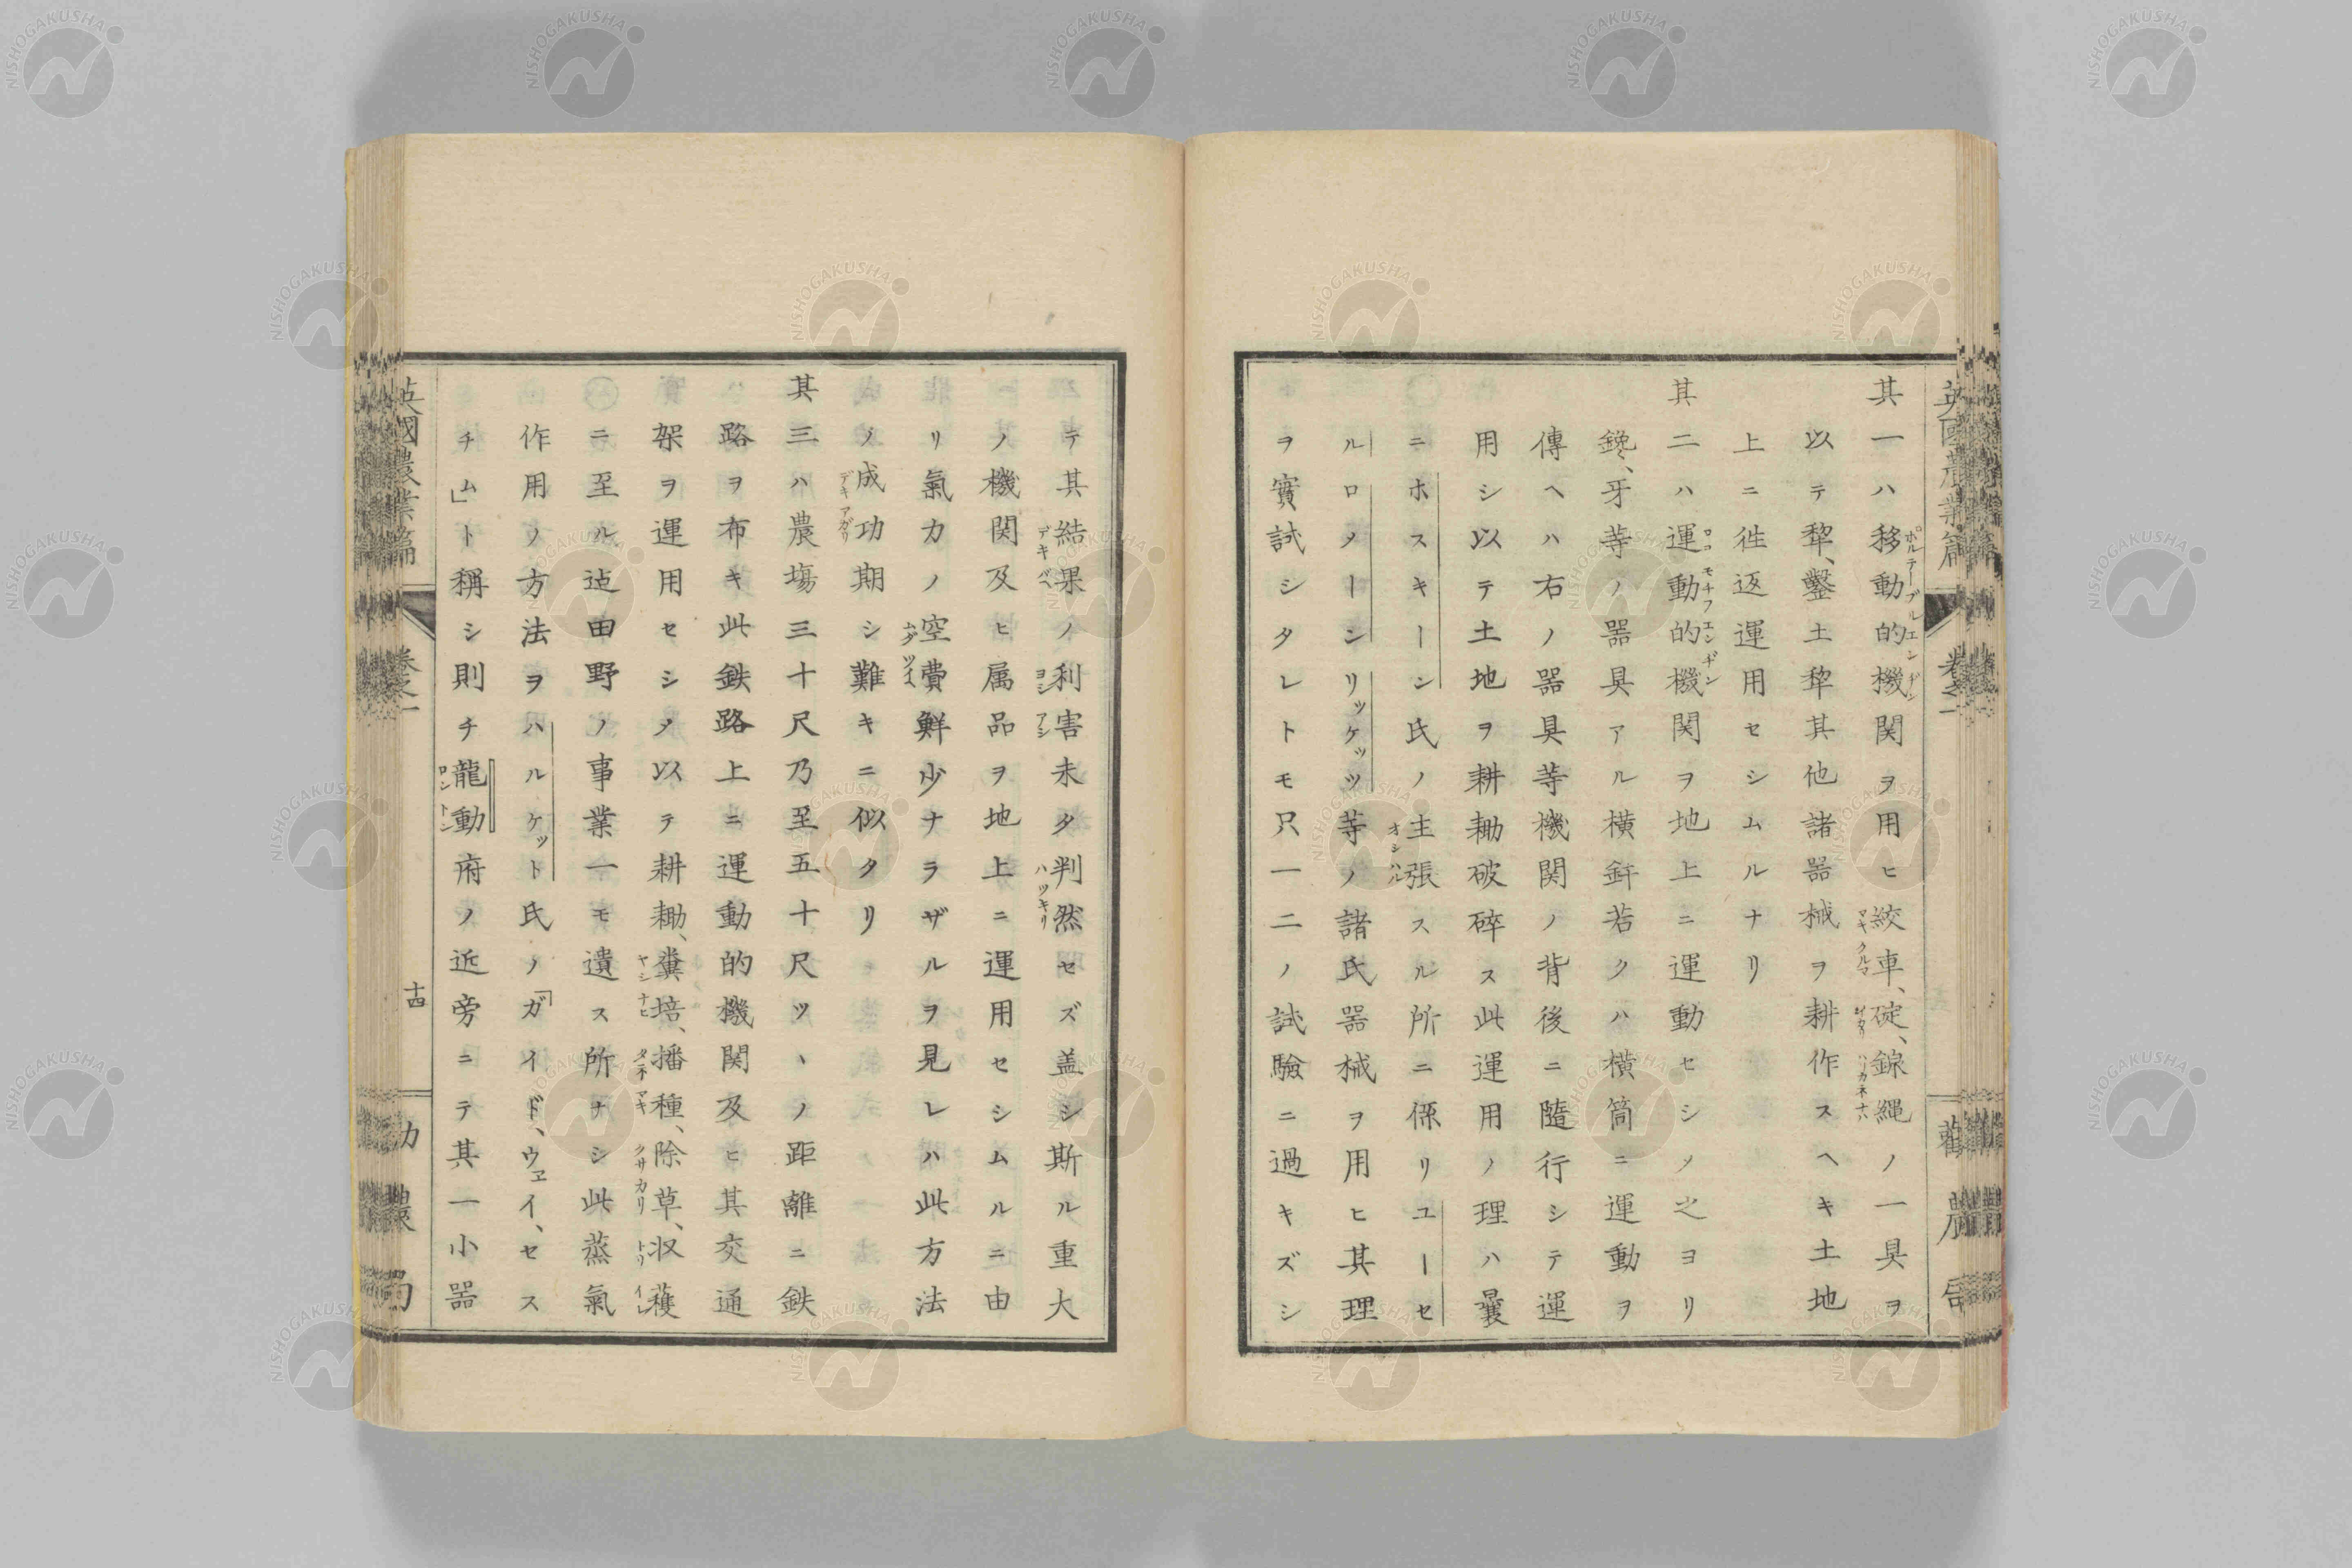 其一ハ移動的機関ヲ用ヒ絞車、碇、錦縄ノ一具ヲ
以テ犂、鑿土犂其他諸器械ヲ耕作スヘキ土地
上ニ徃返運用セシムルナリ
其二ハ運動的機関ヲ地上ニ運動セシメ之ヨリ
鑱、牙等ノ器具アル横釬若クハ横筒ニ運動ヲ
傳ヘハ右ノ器具等機関ノ背後ニ隨行シテ運
用シ以テ土地ヲ耕耡破碎ス此運用ノ理ハ曩
ニホスキーン氏ノ主張スル所ニ係リユーセ
ルロメーンリッケッツ等ノ諸氏器械ヲ用ヒ其理
ヲ實試シタレトモ只一二ノ試驗ニ過キズシ
テ其結果ノ利害未タ判然セズ盖シ斯ル重大
ノ機関及ヒ属品ヲ地上ニ運用セシムルニ由
リ氣力ノ空費鮮少ナラザルヲ見レハ此方法
ノ成功期シ難キニ似タリ
其三ハ農塲三十尺乃至五十尺ツヽノ距離ニ鉄
路ヲ布キ此鉄路上ニ運動的機関及ヒ其交通
架ヲ運用セシメ以テ耕耡、糞培、播種、除草、収穫
ニ至ル迠田野ノ事業一モ遺ス所ナシ此蒸氣
作用ノ方法ヲハルケット氏ノ「ガイド、ウエイ、セス
チム」ト稱シ則チ龍動府ノ近旁ニテ其一小器
英國農業篇 卷之一 十四 勧農局